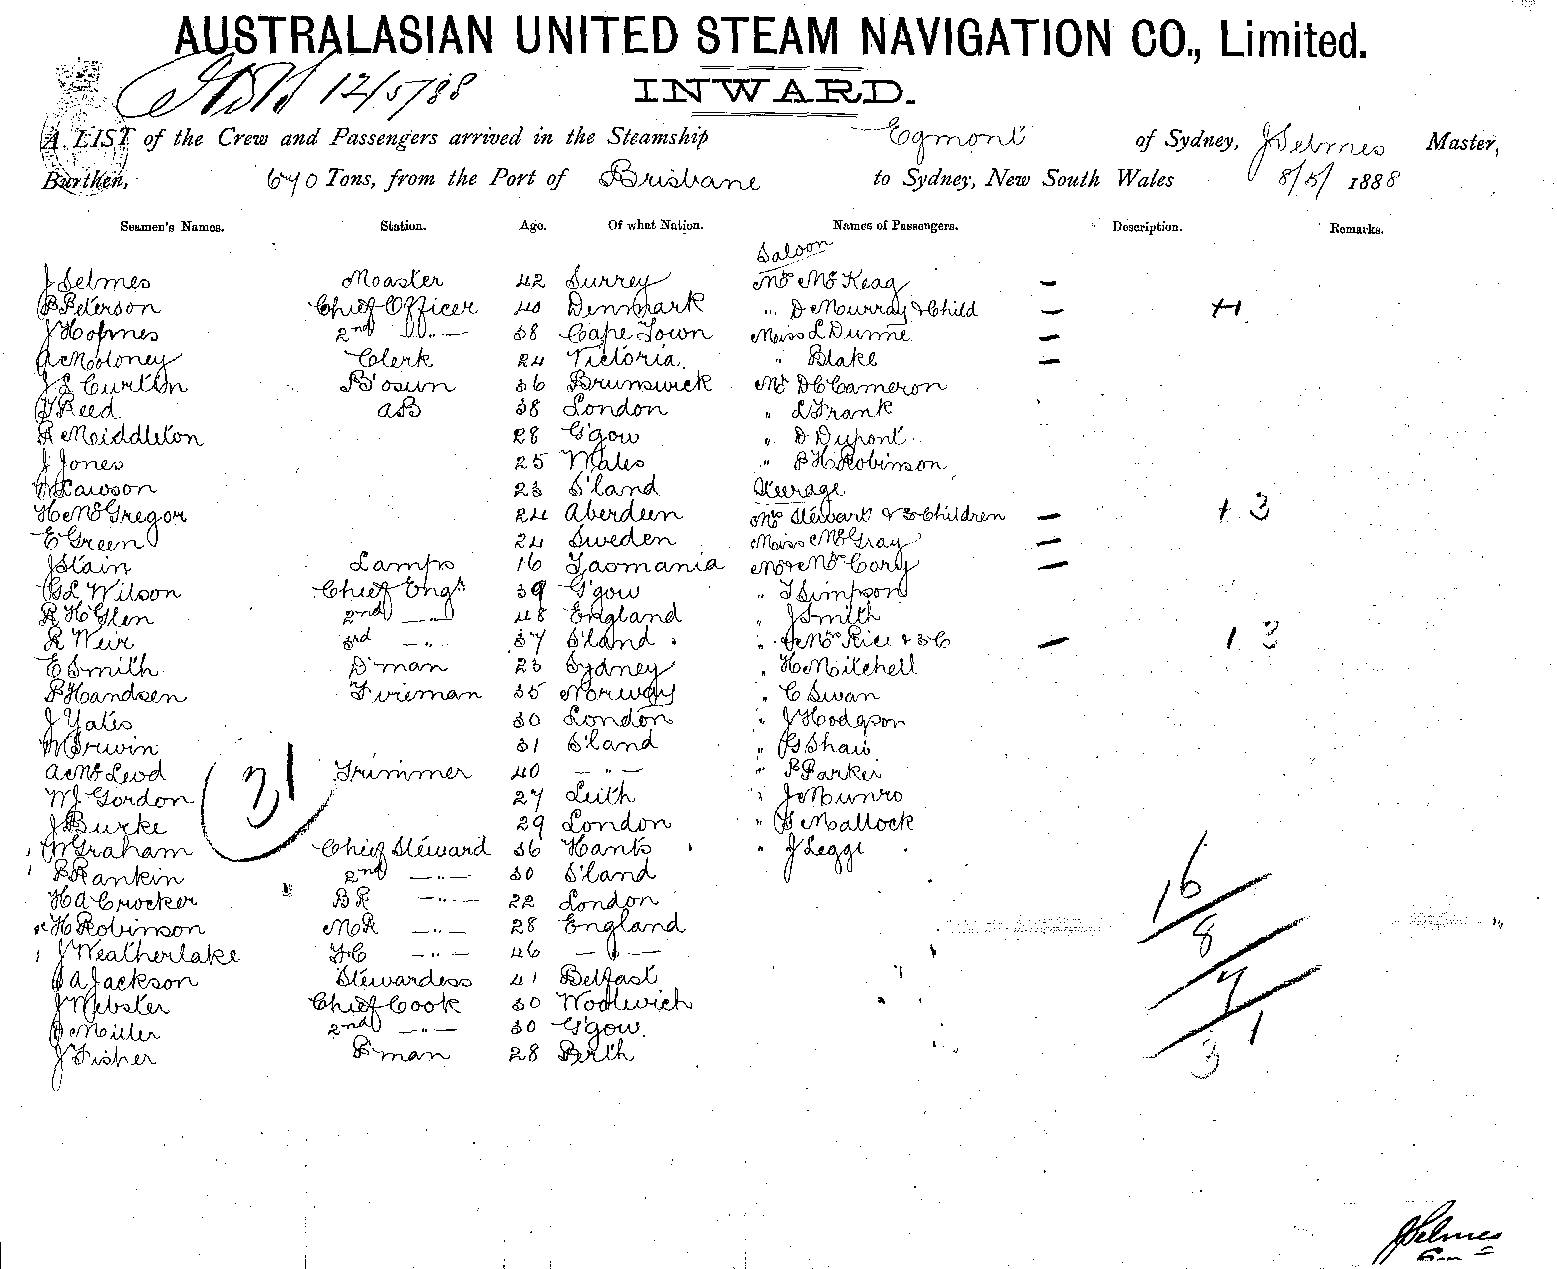 AUSTRALASIAN UNITED STEAM NAVIGATION CO., Limited.
12/5/88
INWARD.
A LIST of the Crew and Passengers arrived in the Steamship Egmont of Sydney, J Selmes Master,
Burthen, 670 Tons, from the Port of Brisbane to Sydney, New South Wales 8/5/ 1888
Seamen's Names. Station. Age. Of what Nation. Names of Passengers. Description. Remarks.
Saloon
J Selmes Master 42 Surrey Mr McKeag —
P Peterson Chief Officer 40 Denmark " D Murray & Child — +1
J Holmes 2nd —"— 38 Cape Town Miss L Dunne —
A Moloney Clerk 24 Victoria. " Blake —
J L Curtin B'osun 36 Brunswick Mr D C Cameron
J Reed AB 38 London " L Frank
R Middleton 28 G'gow " D Dupont
J Jones 25 Wales " P H Robinson
Lawson 23 S'land Steerage
H McGregor 24 Aberdeen Mrs Stewart & 3 Children — 1 3
E Green 24 Sweden Miss McGray —
J Stain Lamps 16 Tasmania Mr & Mrs Cory —
G L Wilson Chief Engr 39 G'gow " T Simpson
R H Glen 2nd —"— 48 England " J Smith
R Weir 3rd —"— 37 S'land " & Mrs Rice & 3 C — 1 3
E Smith D'man 23 Sydney " H Mitchell
P Handsen Fireman 35 Norway " C Swan
J Yates 30 London " J Hodgson
W Irwin 31 S'land " G Shaw
A McLeod Trimmer 40 —"— " P Parker
W J Gordon 27 Leith " J Munro
J Burke 29 London " G Mallock
W Graham Chief Steward 36 Hants " J Legge
P Rankin 2nd —"— 30 S'land
H A Crocker BR —"— 22 London
H Robinson MR —"— 28 England
J Weatherlake FC —"— 46 —"—
A Jackson Stewardess 41 Belfast
J Webster Chief Cook 30 Woolwich
Miller 2nd —"— 30 G'gow.
J Fisher P'man 28 Perth
31
16
8
7
1
3
J Selmes